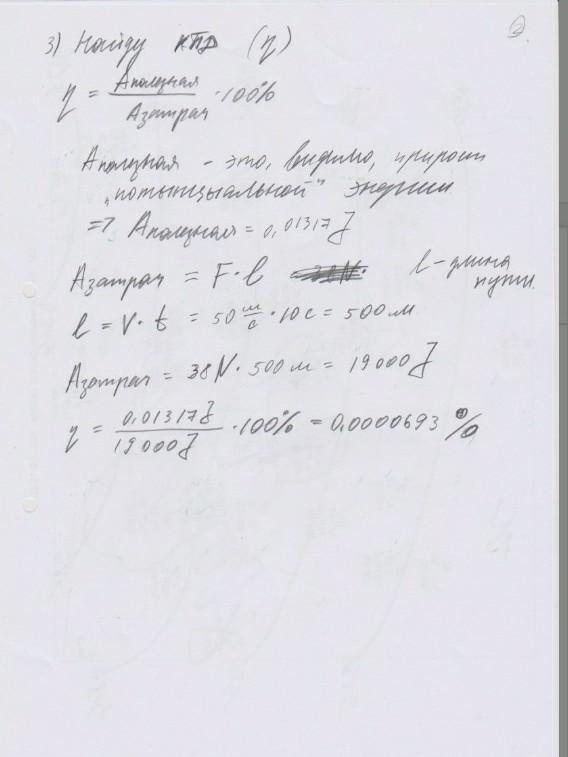 2
3) Найду КПД (η)
η = Аполезная / Азатрач · 100%
Аполезная - это, видимо, прирост
"потынцыальной" энергии
=> Аполезная = 0,01317 J
Азатрач = F · l l - длина
пути.
l = V · t = 50 м/с · 10 с = 500 м
Азатрач = 38N · 500 м = 19000 J
η = 0,01317 J / 19000 J · 100% = 0,0000693 %